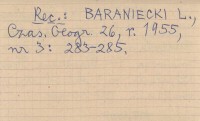 Rec.: BARANIECKI L.,
Czas. Geogr. 26, r. 1955,
nr 3: 283-285.